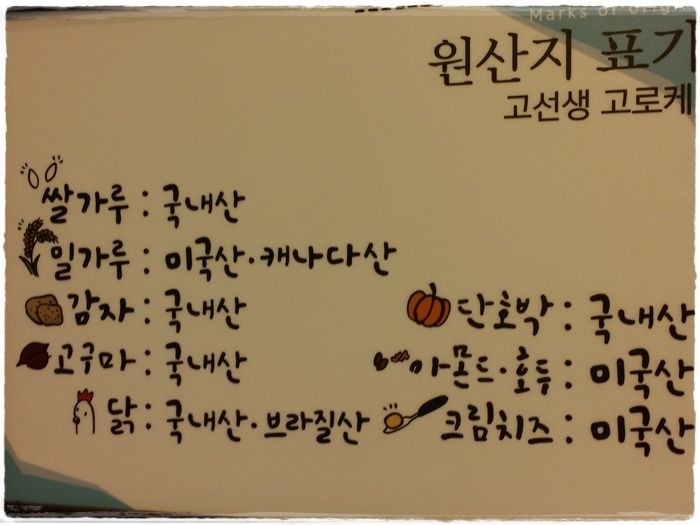 Marks of Orig
원산지 표기
고선생 고로케
쌀가루 : 국내산
밀가루 : 미국산·캐나다산
감자 : 국내산
고구마 : 국내산
닭 : 국내산·브라질산
단호박 : 국내산
아몬드·호두 : 미국산
크림치즈 : 미국산